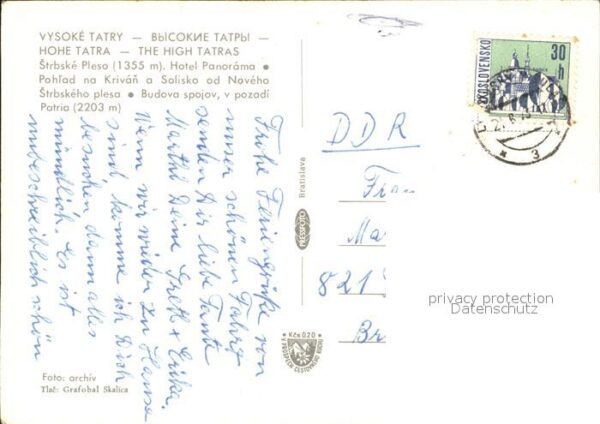 VYSOKÉ TATRY — ВЫСОКИЕ ТАТРЫ —
HOHE TATRA — THE HIGH TATRAS
Štrbské Pleso (1355 m). Hotel Panoráma •
Pohľad na Kriváň a Solisko od Nového
Štrbského plesa • Budova spojov, v pozadí
Patria (2203 m)
Frohe Feriengrüße von
unser schönen Fahrt
senden Dir liebe Tante
Martha Deine Gretl + Erika.
Wenn wir wieder zu Hause
sind, komme ich Dich
besuchen dann alles
mündlich. Es ist
unbeschreiblich schön
Foto: archív
Tlač: Grafobal Skalica
Bratislava
PRESSFOTO
Kčs 0,20
DDR
Frau
Ma
821
Br
30 h
ČESKOSLOVENSKO
3
privacy protection
Datenschutz